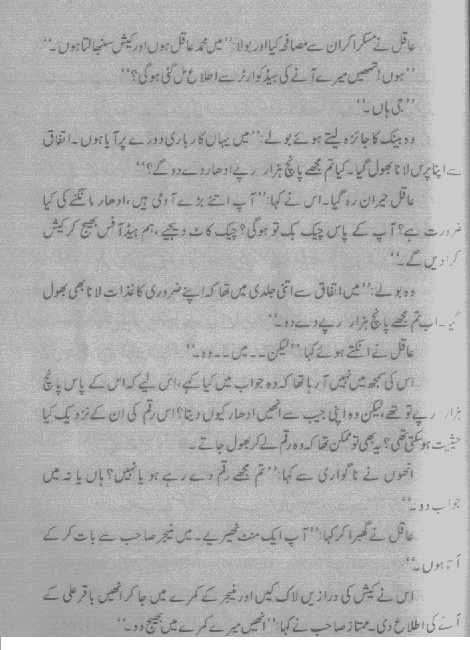 عاقل نے مسکرا کر ان سے مصافحہ کیا اور بولا: ’’میں محمد عاقل ہوں اور کیش سنبھالتا ہوں۔‘‘
’’ہوں! تمھیں میرے آنے کی ہیڈ کوارٹر سے اطلاع مل گئی ہوگی؟‘‘
’’جی ہاں۔‘‘
وہ بینک کا جائزہ لیتے ہوئے بولے: ’’میں یہاں کاروباری دورے پر آیا ہوں۔ اتفاق
سے اپنا پرس لانا بھول گیا۔ کیا تم مجھے پانچ ہزار رپے ادھار دے دو گے؟‘‘
عاقل حیران رہ گیا۔ اس نے کہا: ’’آپ اتنے بڑے آدمی ہیں، ادھار مانگنے کی کیا
ضرورت ہے؟ آپ کے پاس چیک بک تو ہوگی؟ چیک کاٹ دیجیے، ہم ہیڈ آفس بھیج کر کیش
کرا دیں گے۔‘‘
وہ بولے: ’’میں اتفاق سے اتنی جلدی میں تھا کہ اپنے ضروری کاغذات لانا بھی بھول
گیا۔ اب تم مجھے پانچ ہزار رپے دے دو۔‘‘
عاقل نے اٹکتے ہوئے کہا: ’’لیکن۔۔ میں۔۔ وہ۔‘‘
اس کی سمجھ میں نہیں آ رہا تھا کہ وہ جواب میں کیا کہے، اس لیے کہ اس کے پاس پانچ
ہزار رپے تو تھے، لیکن وہ اپنی جیب سے انھیں ادھار کیوں دیتا؟ اس رقم کی ان کے نزدیک کیا
حیثیت ہو سکتی تھی؟ یہ بھی تو ممکن تھا کہ وہ رقم لے کر بھول جاتے۔
انھوں نے ناگواری سے کہا: ’’تم مجھے رقم دے رہے ہو یا نہیں؟ ہاں یا نہ میں
جواب دو۔‘‘
عاقل نے گھبرا کر کہا: ’’آپ ایک منٹ ٹھیریے۔ میں منیجر صاحب سے بات کر کے
آتا ہوں۔‘‘
اس نے کیش کی درازیں لاک کیں اور منیجر کے کمرے میں جا کر انھیں باقر علی کے
آنے کی اطلاع دی۔ ممتاز صاحب نے کہا: ’’انھیں میرے کمرے میں بھیج دو۔‘‘